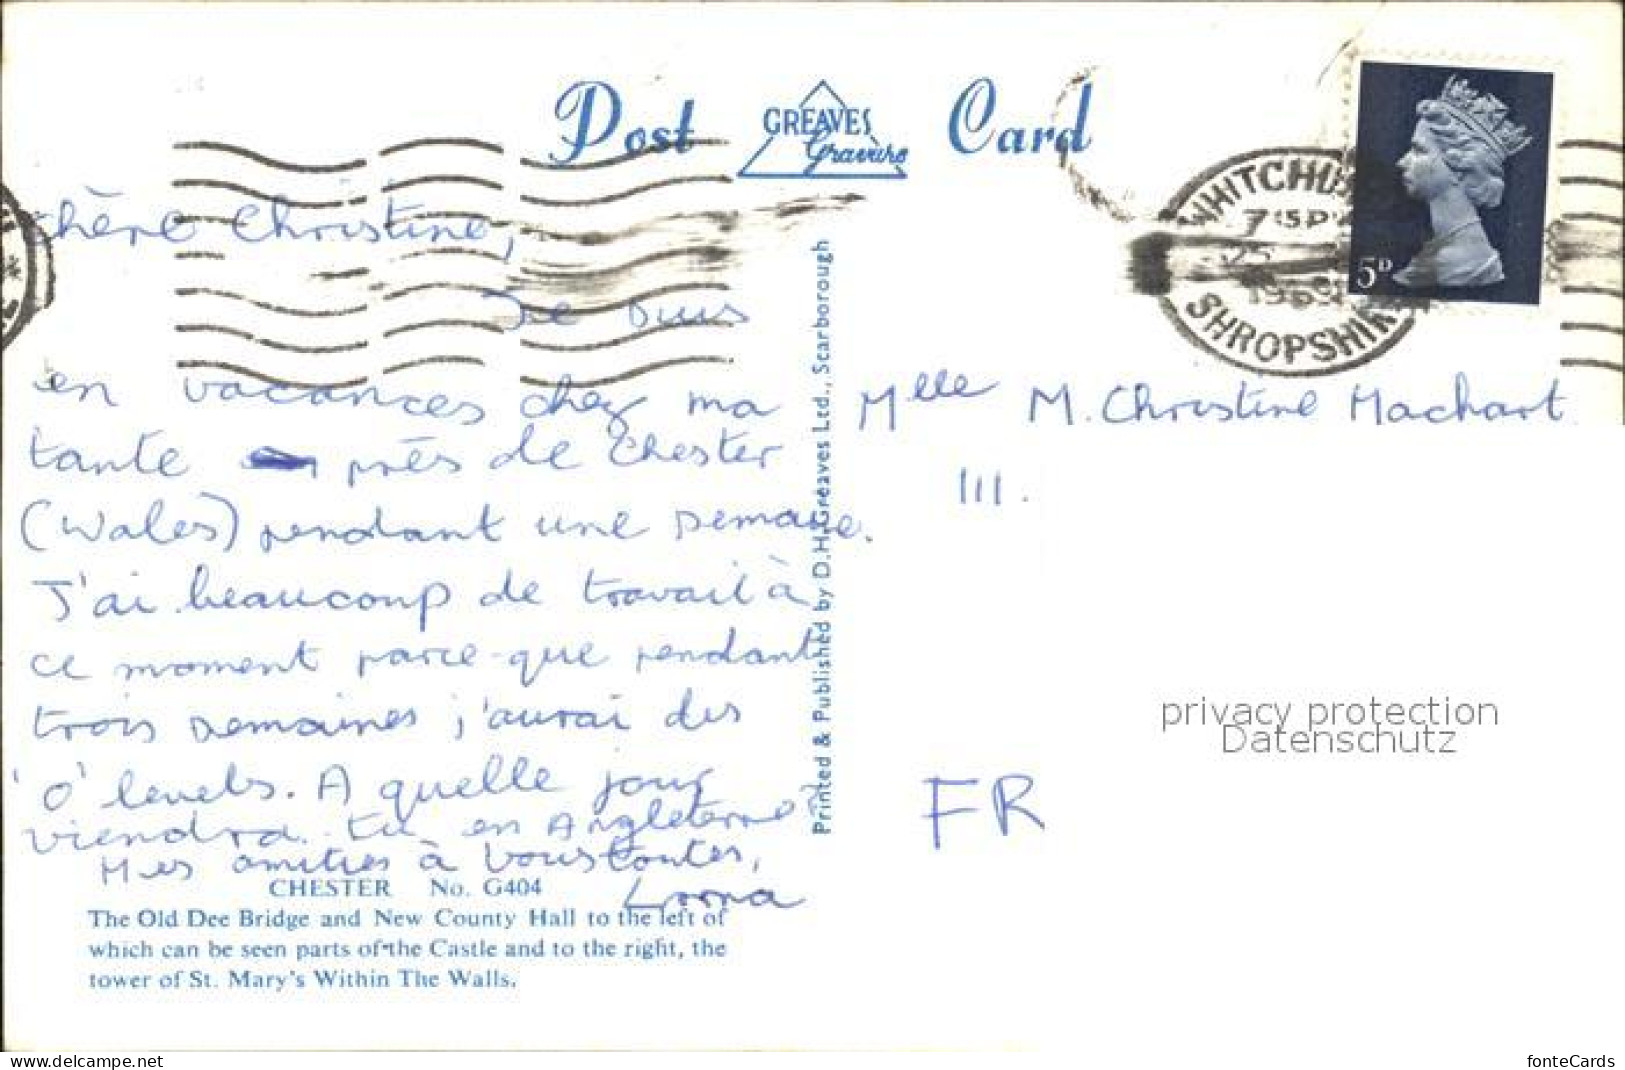 Post Card
GREAVES
Gravure
WHITCHU
7 15 PM
25
1969
SHROPSHIR
5D
chère Christine,
Je suis
en vacances chez ma
tante près de Chester
(Wales) pendant une semaine.
J'ai beaucoup de travail à
ce moment parce-que pendant
trois semaines j'aurai des
'O' levels. A quelle jour
viendra tu en Angleterre?
Mes amitiés à vous toutes,
Lorna
CHESTER No. G404
The Old Dee Bridge and New County Hall to the left of
which can be seen parts of the Castle and to the right, the
tower of St. Mary's Within The Walls.
Printed & Published by D.H. Greaves Ltd., Scarborough
Mlle M. Christine Machart
111.
FR
privacy protection
Datenschutz
www.delcampe.net
fonteCards